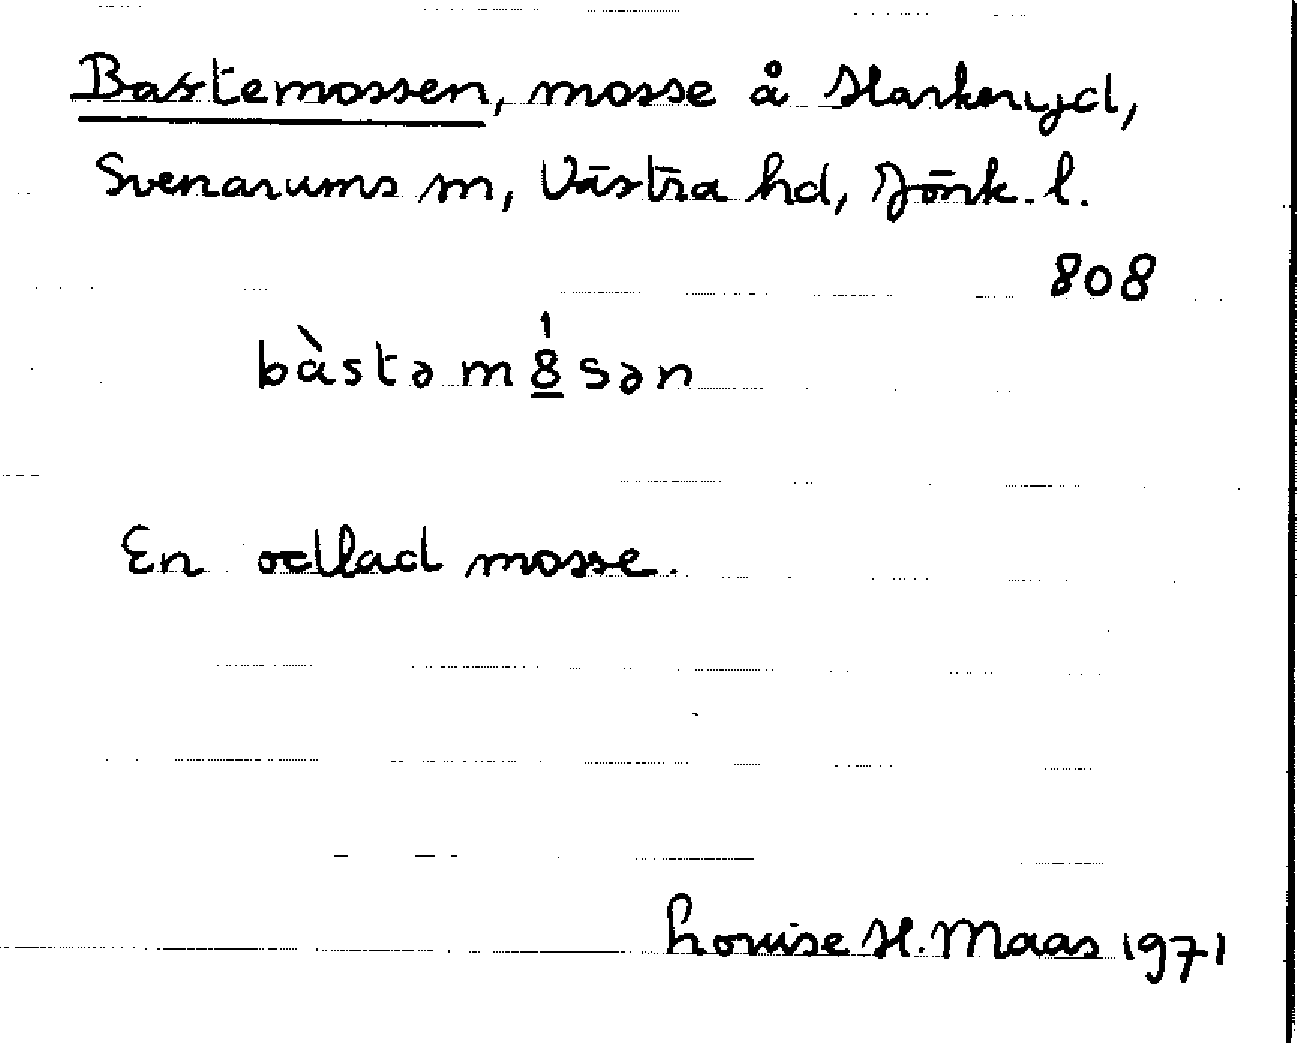 Bastemossen, mosse å Harkeryd,
Svenarums sn, Västra hd, Jönk. l.
808
bàstəm8̲́sən
En odlad mosse.
Louise H. Maas 1971